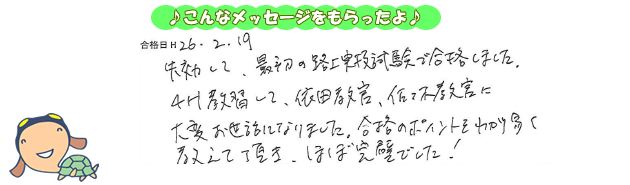 ♪こんなメッセージをもらったよ♪
合格日H26.2.19
失効して、最初の路上実技試験で合格しました。
4H教習して、依田教官、佐々木教官に
大変お世話になりました。合格のポイントをわかり易く
教えて頂き、ほぼ完璧でした!